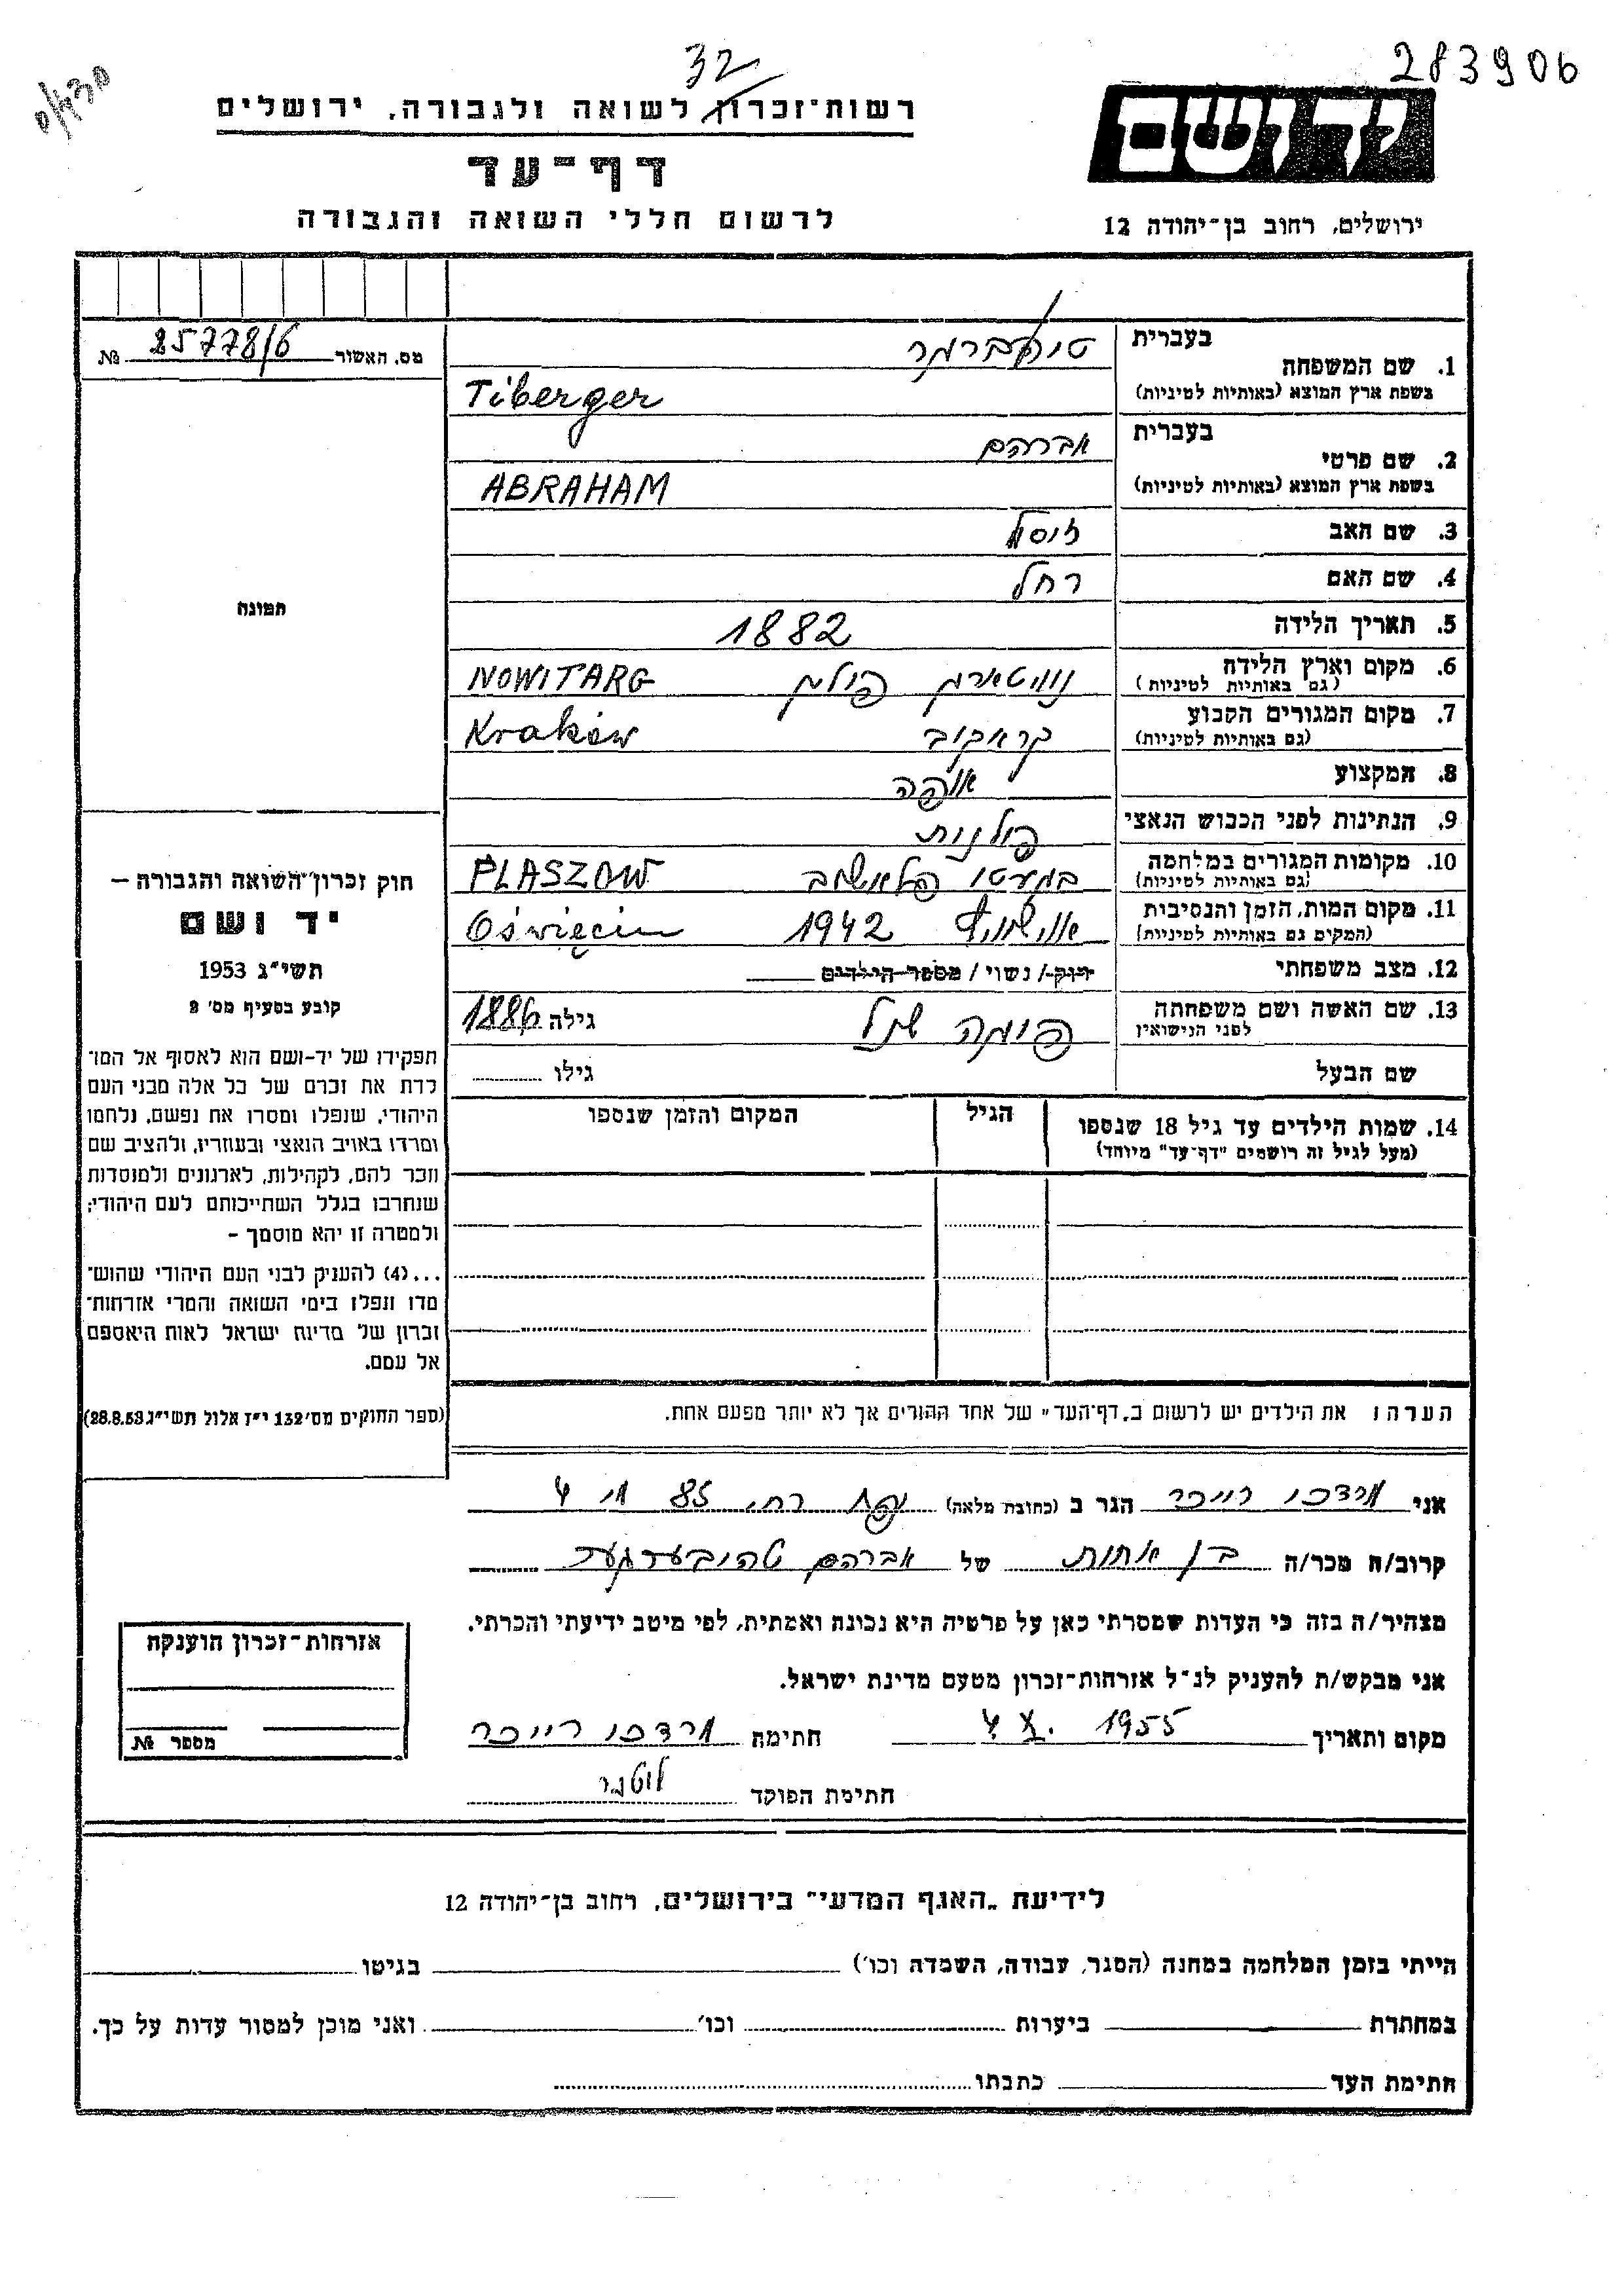 283906
32
רשות־זכרון לשואה ולגבורה, ירושלים
יד ושם
דף־עד
לרשום חללי השואה והגבורה
ירושלים, רחוב בן־יהודה 12
מס. האשור 25778/6 №
בעברית
1. שם המשפחה
בשפת ארץ המוצא (באותיות לטיניות)
Tiberger
בעברית אברהם
2. שם פרטי
בשפת ארץ המוצא (באותיות לטיניות)
ABRAHAM
3. שם האב זוסל
4. שם האם רחל
תמונה
5. תאריך הלידה 1882
6. מקום וארץ הלידה נוויטארג פולין NOWITARG
(גם באותיות לטיניות)
7. מקום המגורים הקבוע קראקוב Kraków
(גם באותיות לטיניות)
8. המקצוע אופה
9. הנתינות לפני הכבוש הנאצי פולנית
10. מקומות המגורים במלחמה בגעטו פלאשוב PLASZOW
(גם באותיות לטיניות)
11. מקום המות, הזמן והנסיבות אושוויץ 1942 Oświęcim
(המקום גם באותיות לטיניות)
12. מצב משפחתי רווק/ נשוי / מספר הילדים
13. שם האשה ושם משפחתה גילה 1886
לפני הנישואין
שם הבעל גילו
14. שמות הילדים עד גיל 18 שנספו הגיל המקום והזמן שנספו
(מעל לגיל זה רושמים "דף־עד" מיוחד)
חוק זכרון־השואה והגבורה —
יד ושם
תשי"ג 1953
קובע בסעיף מס' 2
תפקידו של יד-ושם הוא לאסוף אל המו־
לדת את זכרם של כל אלה מבני העם
היהודי, שנפלו ומסרו את נפשם, נלחמו
ומרדו באויב הנאצי ובעוזריו, ולהציב שם
וזכר להם, לקהילות, לארגונים ולמוסדות
שנחרבו בגלל השתייכותם לעם היהודי;
ולמטרה זו יהא מוסמך –
...(4) להעניק לבני העם היהודי שהוש־
מדו ונפלו בימי השואה והמרי אזרחות־
זכרון של מדינת ישראל לאות היאספם
אל עמם.
(ספר החוקים מס' 132 י"ז אלול תשי"ג 28.8.53)
הערה: את הילדים יש לרשום ב„דף־העד" של אחד ההורים אך לא יותר מפעם אחת.
אני מרדכי רייכר הגר ב (כתובת מלאה) 85
קרוב/ה מכר/ה בן אחות של אברהם
מצהיר/ה בזה כי העדות שמסרתי כאן על פרטיה היא נכונה ואמתית, לפי מיטב ידיעתי והכרתי.
אני מבקש/ת להעניק לנ"ל אזרחות־זכרון מטעם מדינת ישראל.
מקום ותאריך 4 X. 1955 חתימה מרדכי רייכר
חתימת הפוקד
אזרחות־זכרון הוענקה
מספר №
לידיעת „האגף המדעי" בירושלים, רחוב בן־יהודה 12
הייתי בזמן המלחמה במחנה (הסגר, עבודה, השמדה וכו') בגיטו
במחתרת ביערות וכו' ואני מוכן למסור עדות על כך.
חתימת העד כתבתו